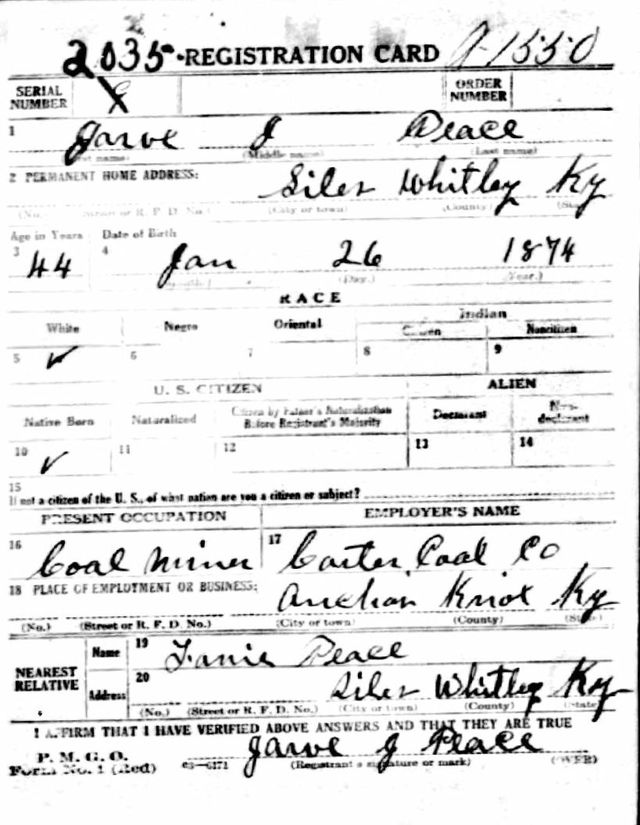 2035 REGISTRATION CARD A-1550
SERIAL NUMBER ORDER NUMBER
1 Jarve J Peace
(First name) (Middle name) (Last name)
2 PERMANENT HOME ADDRESS: Siler Whitley Ky
(No.) (Street or R. F. D. No.) (City or town) (County) (State)
Age in Years Date of Birth
3 44 4 Jan 26 1874
(Month.) (Day.) (Year.)
RACE
White Negro Oriental Indian
Citizen Noncitizen
5 ✓ 6 7 8 9
U. S. CITIZEN ALIEN
Native Born Naturalized Citizen by Father's Naturalization Before Registrant's Majority Declarant Non-declarant
10 ✓ 11 12 13 14
15
If not a citizen of the U. S., of what nation are you a citizen or subject?
PRESENT OCCUPATION EMPLOYER'S NAME
16 Coal Miner 17 Carter Coal Co
18 PLACE OF EMPLOYMENT OR BUSINESS:
Knox Ky
(No.) (Street or R. F. D. No.) (City or town) (County) (State)
NEAREST RELATIVE Name 19 Fanie Peace
Address 20 Siler Whitley Ky
(No.) (Street or R. F. D. No.) (City or town) (County) (State)
I AFFIRM THAT I HAVE VERIFIED ABOVE ANSWERS AND THAT THEY ARE TRUE
P. M. G. O.
Form No. 1 (Red) 03—6171 Jarve J Peace
(Registrant's signature or mark) (OVER)